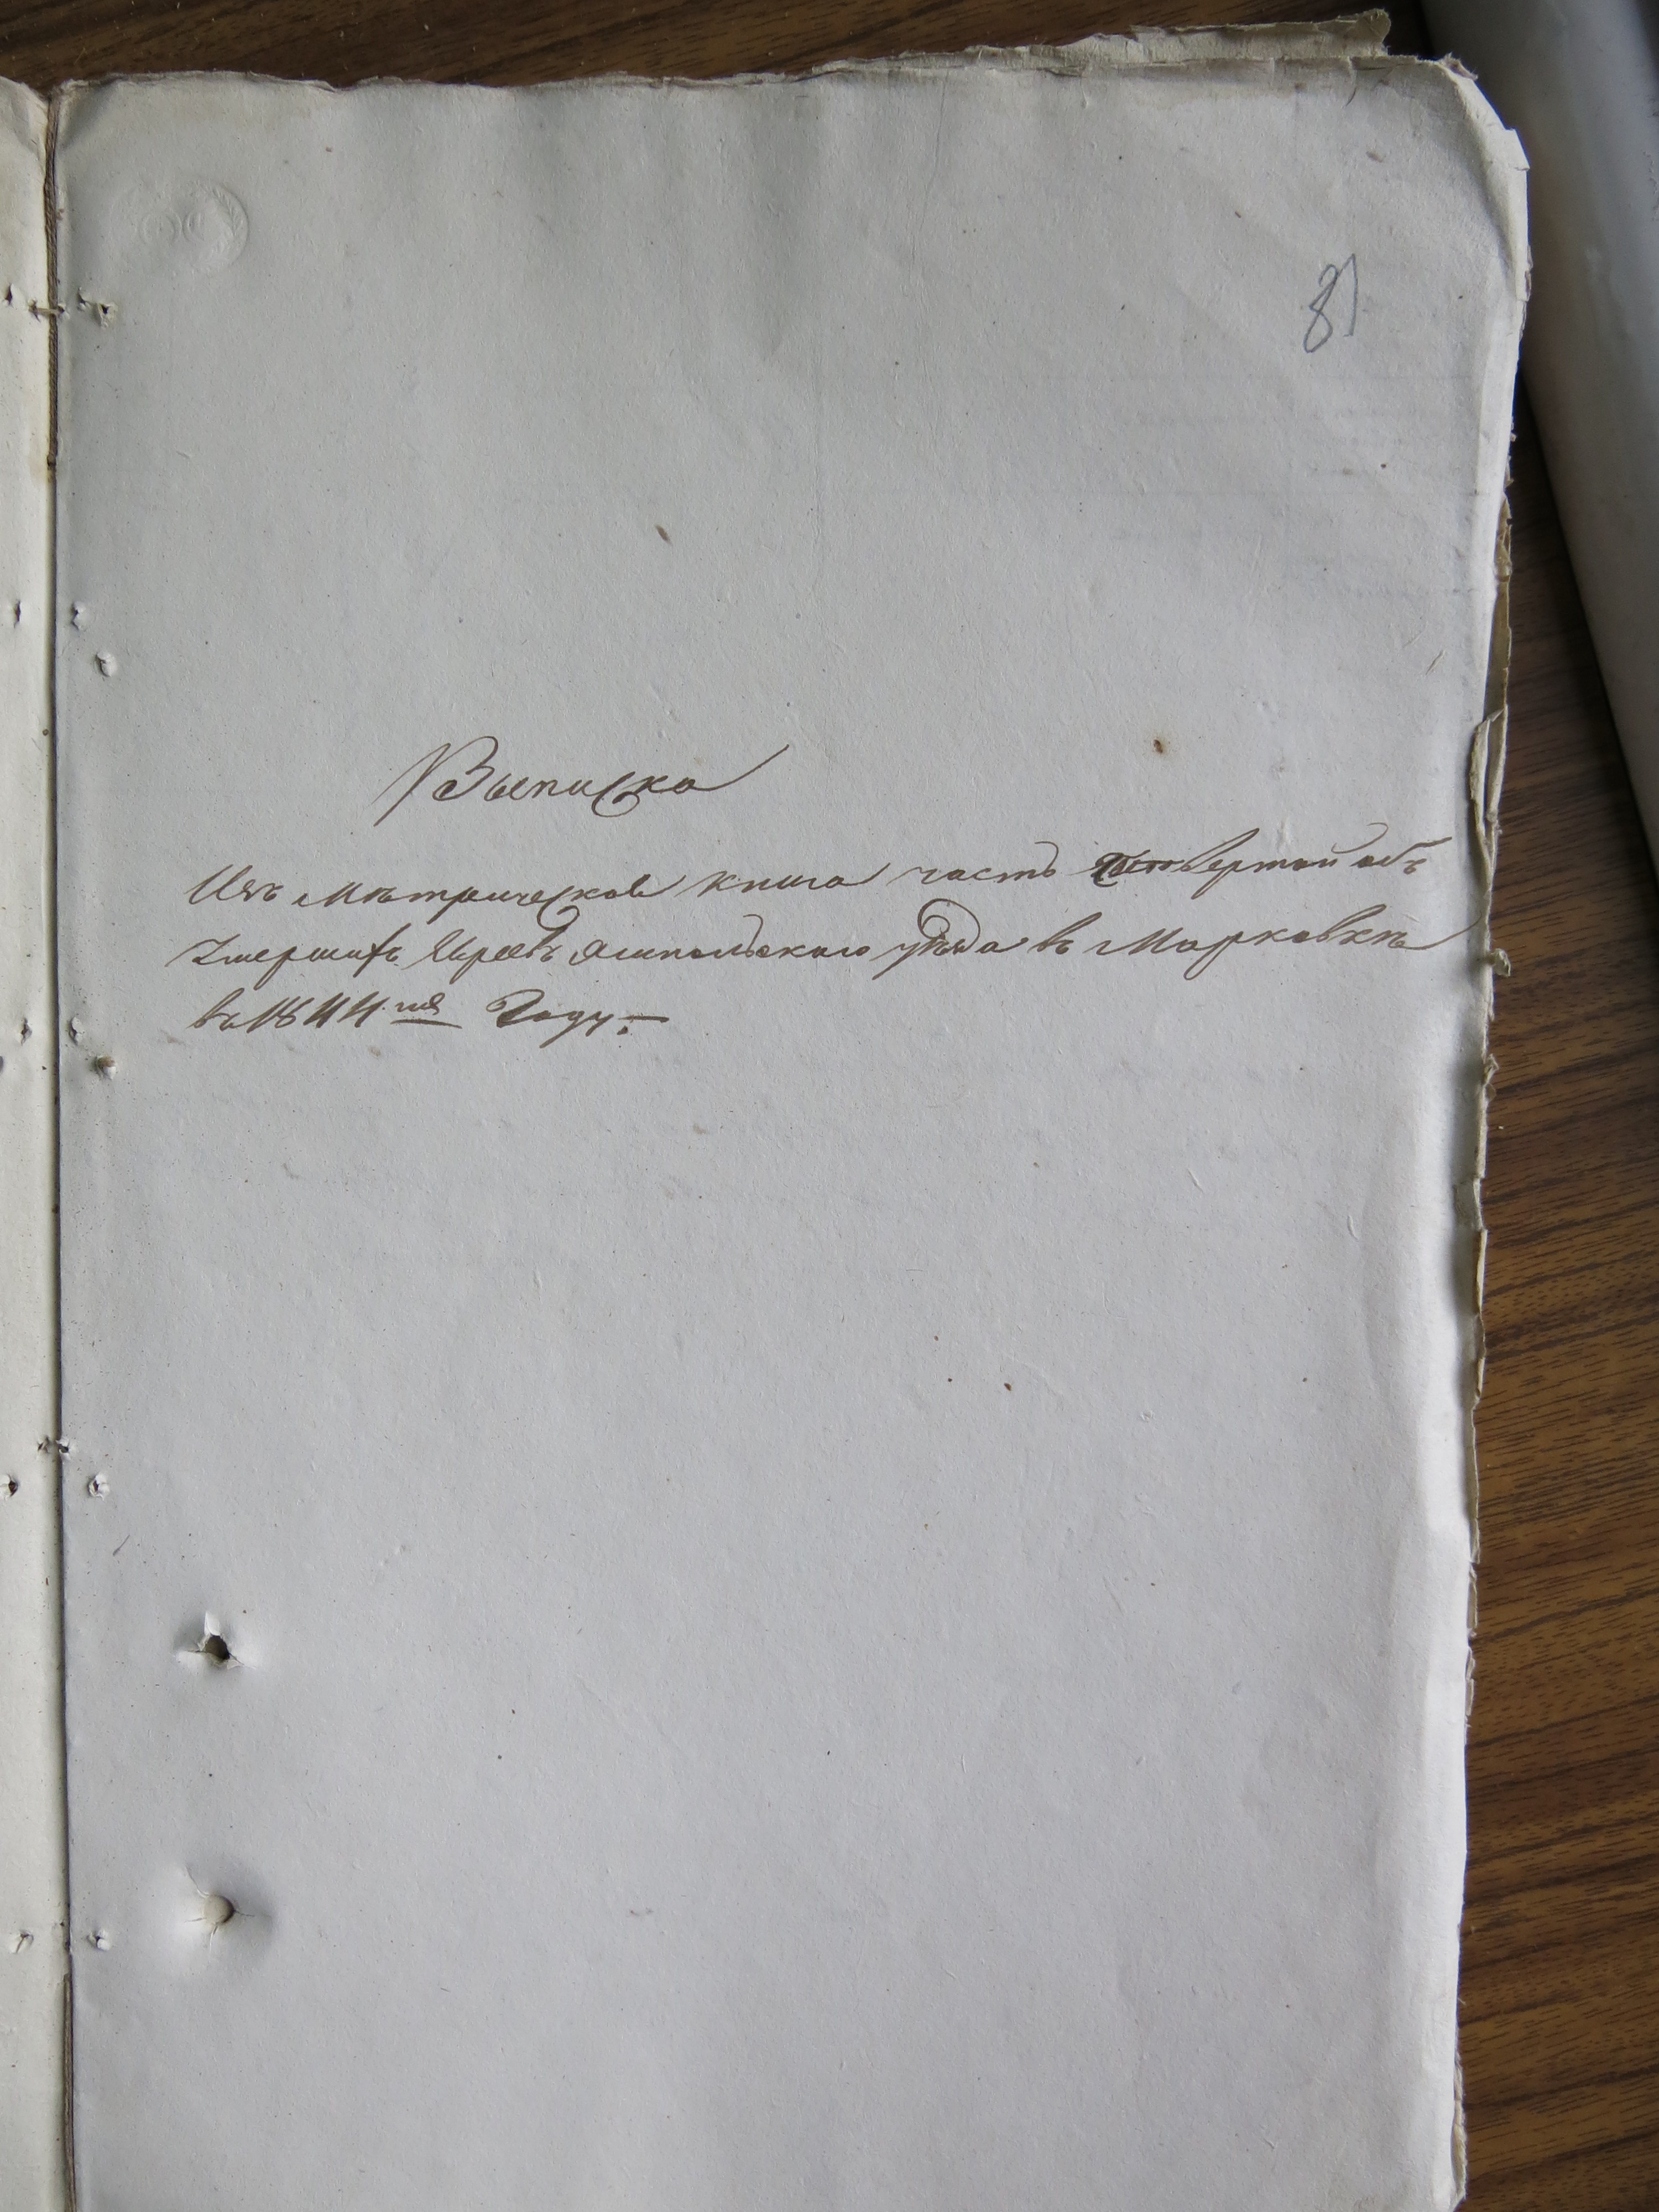 81
Выписка
Изъ Мѣтрической книга часть Четвертой объ
Умершихъ Евреевъ Ямпольскаго уѣзда въ Марковкѣ
въ 1844 мъ Году: